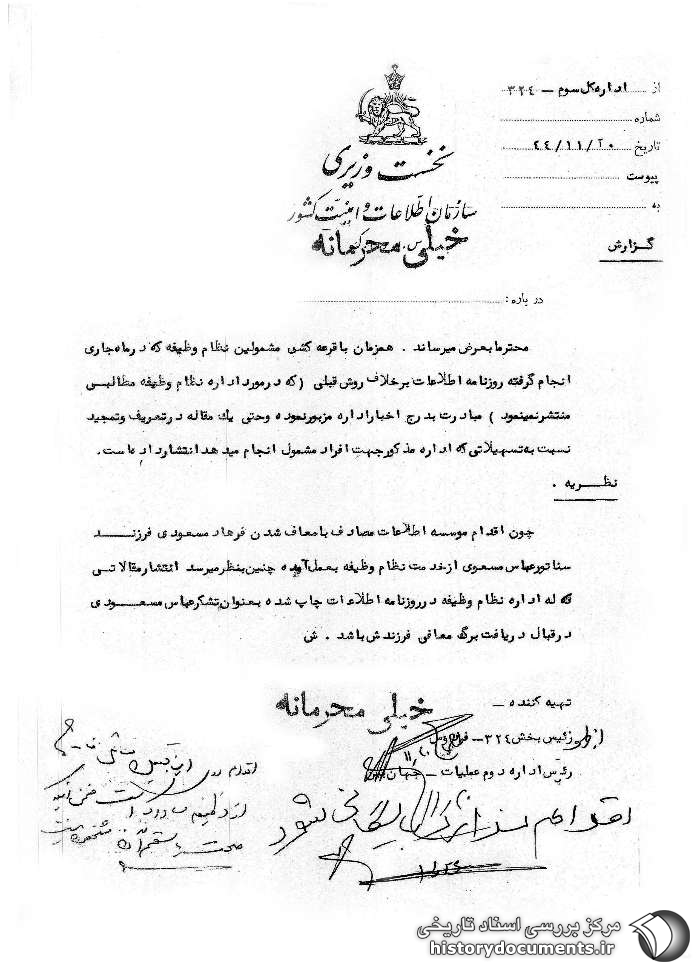 از اداره کل سوم - ۳۲۴
شماره
تاریخ ۴۴/۱۱/۲۰
پیوست
به
گزارش
نخست وزیری
سازمان اطلاعات و امنیت کشور
خیلی محرمانه
در باره :
محترما بعرض میرساند . همزمان با قرعه کشی مشمولین نظام وظیفه که در ماه جاری
انجام گرفته روزنامه اطلاعات بر خلاف روش قبلی ( که در مورد اداره نظام وظیفه مطالبی
منتشر نمینمود ) مبادرت بدرج اخبار اداره مزبور نموده و حتی یك مقاله در تعریف و تمجید
نسبت به تسهیلاتی که اداره مذکور جهت افراد مشمول انجام میدهد انتشار داده است .
نظریه .
چون اقدام موسسه اطلاعات مصادف با معاف شدن فرهاد مسعودی فرزند
سناتور عباس مسعودی از خدمت نظام وظیفه بعمل آمده چنین بنظر میرسد انتشار مقالاتی
که له اداره نظام وظیفه در روزنامه اطلاعات چاپ شده بعنوان تشکر عباس مسعودی
در قبال دریافت برگ معافی فرزندش باشد . ش
تهیه کننده -
خیلی محرمانه
رئیس بخش ۳۲۴ -
رئیس اداره دوم عملیات - جهان
اقدام ندارد بایگانی شود
مرکز بررسی اسناد تاریخی
historydocuments.ir